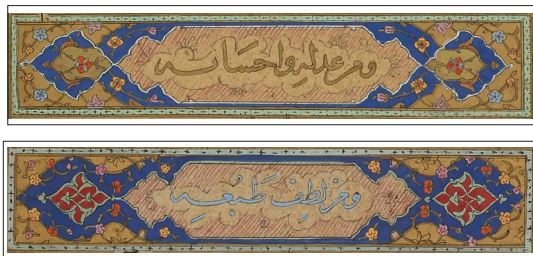 ومن عدله واحسانه
ومن لطف طبعه